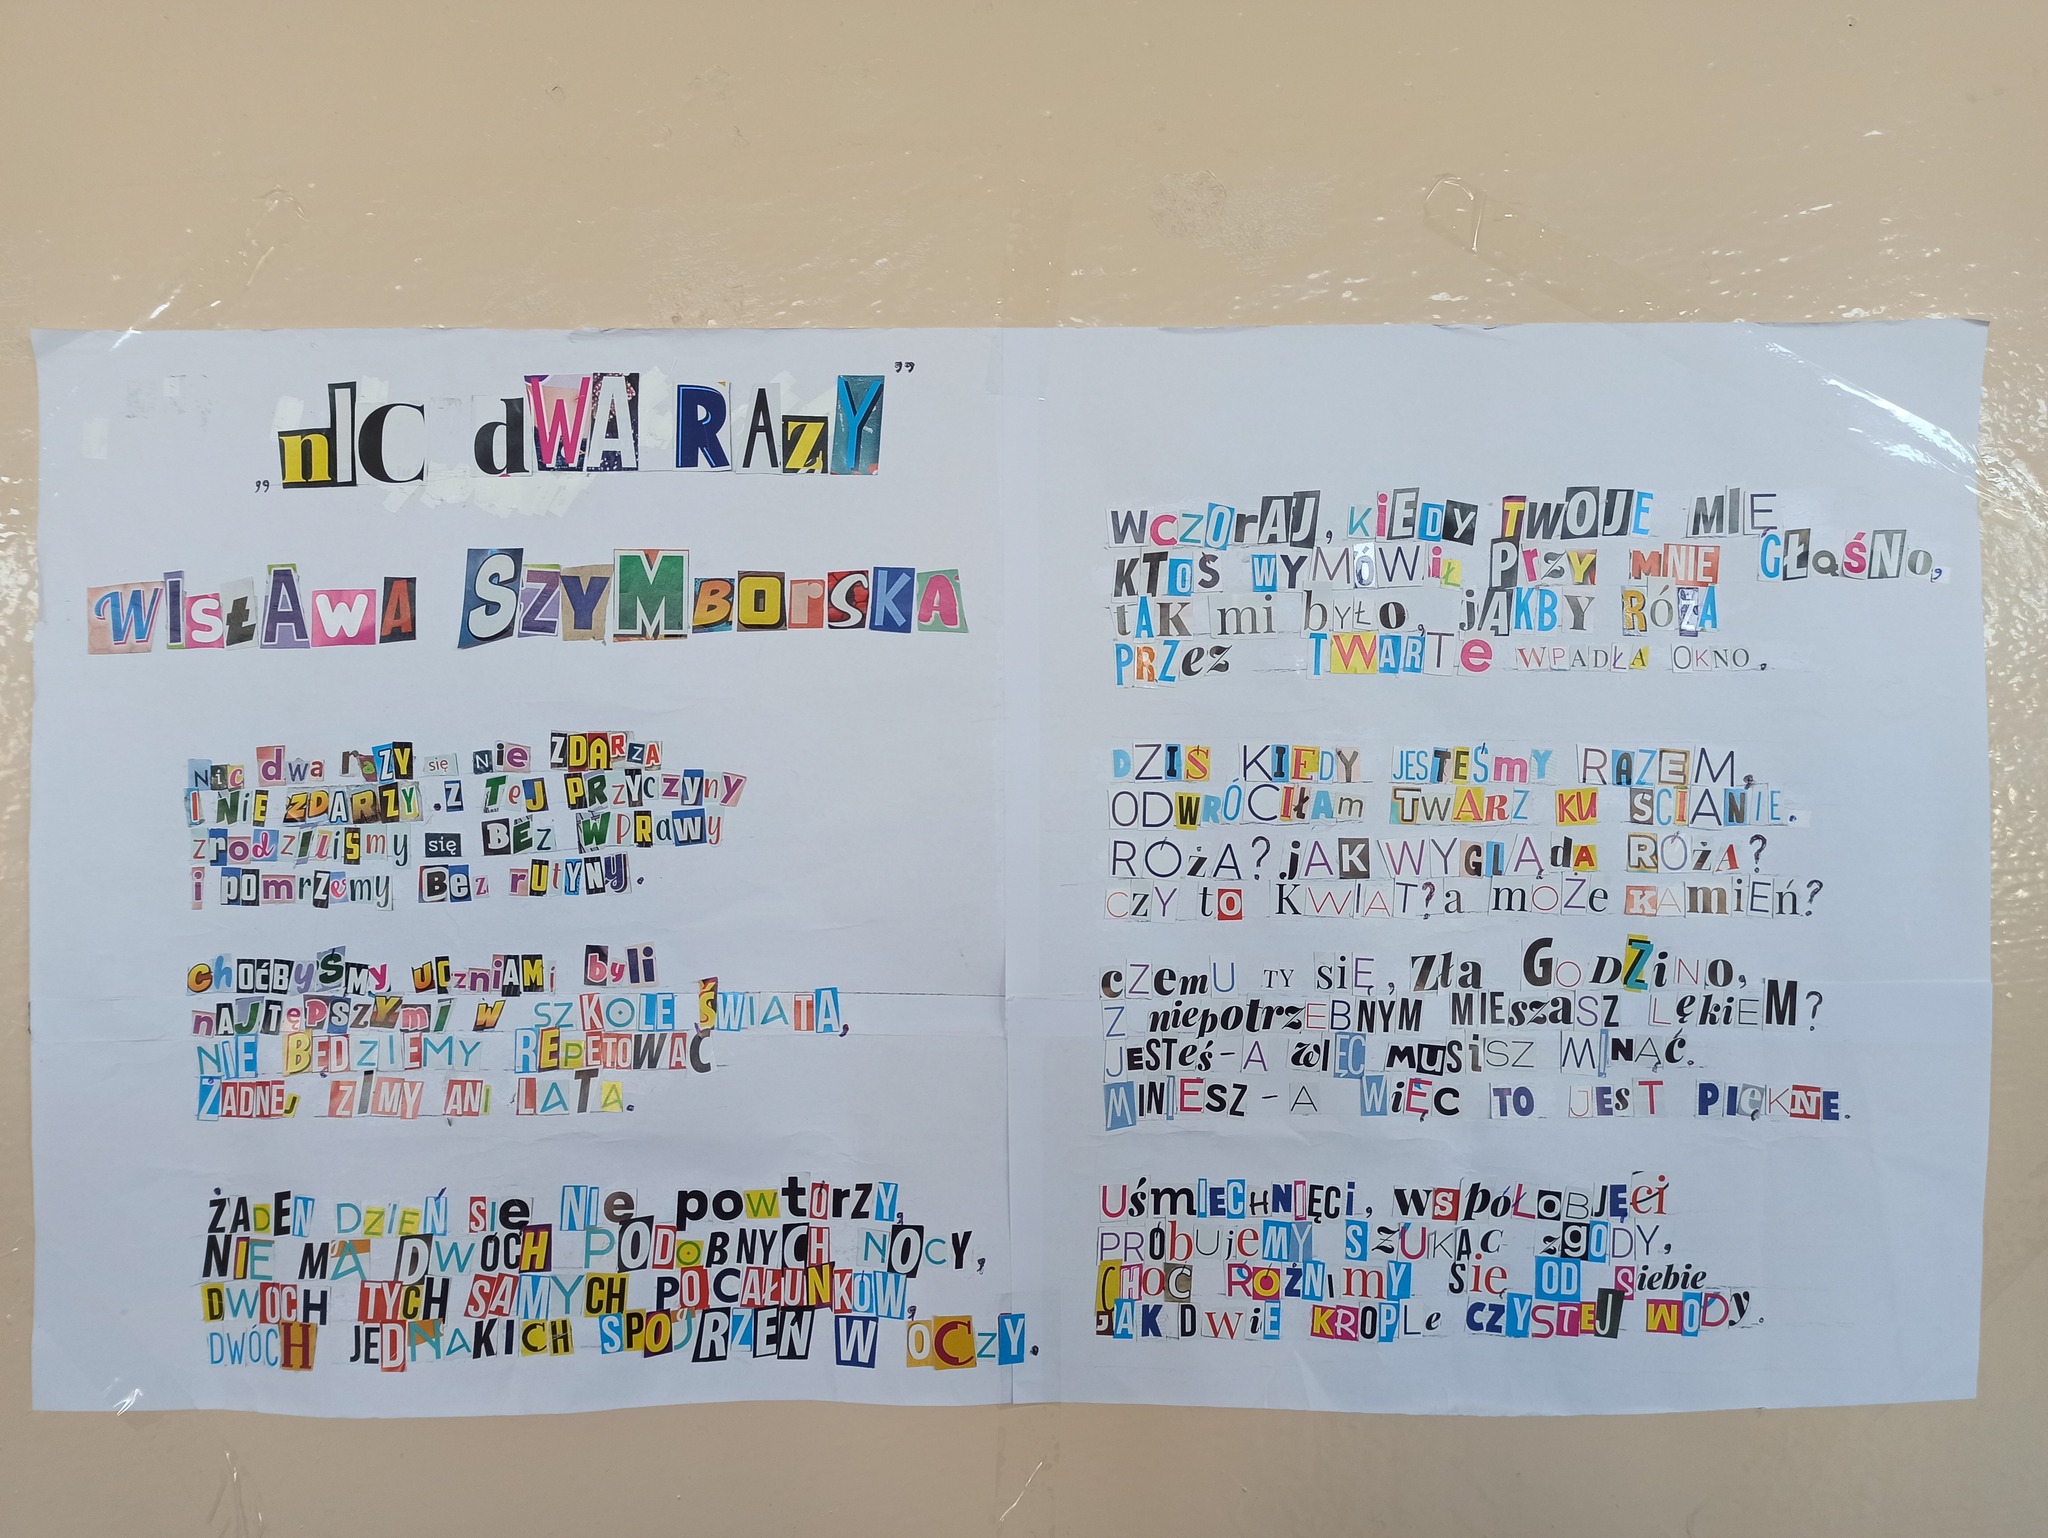 „nIC dWA RAzY”
WIsłAwA SZYMBOrSKA
Nic dwa raZY się Nie ZDARZA
I NIE ZDARZY. Z TeJ PRZYczyny
zrodziliśmy się BEz WPRawy
i pomrzemy Bez rutYNy.
ChOĆBYŚMy UCZNIAMi byli
nAJTępSZYmi w SZKOLE ŚWIATA,
NIE BĘDZIEMY REPETOWAĆ
ŻADNEJ ZIMY ANI LATA.
ŻADEN DZIEŃ SIę NIe powtórzy,
NIE MA DWÓCH PODOBNYCH NOCY,
DWÓCH TYCH SAMYCH POCAŁUNKÓW,
DWÓCH JEDNAKICH SPOJRZEŃ W OCzY.
WcZOrAJ, kiEDY TWOJE MIĘ
KTOŚ WYMÓWił PrzY MNIE GŁąŚNo,
tAK mi byŁo, jAKBY RÓżA
PRZez TWARTe WPADŁA OKNO.
DZIŚ KIEDY JESTEŚmY RAZEM,
ODWRÓCIŁAm TWARZ KU ŚCIANIE.
RÓżA? jAK WYGLĄdA RÓżA?
czY to KWIAT? a mOŻe KAmiEń?
czemU TY siĘ, Zła GoDZiNo,
Z niepotrzEBNYM MIEszaSZ LękiEM?
JESTeś-A wIĘC MUSiSZ MINĄĆ.
MINIESZ-A WięC TO JEsT PIęKNE.
UśmIECHNIĘCi, wspóŁOBJĘci
PRÓbUjeMY SzUKAć zgODY,
CHOĆ RÓŻNImY Się OD siebie
JAK DWiE KROPLe CZYSTEJ WODy.